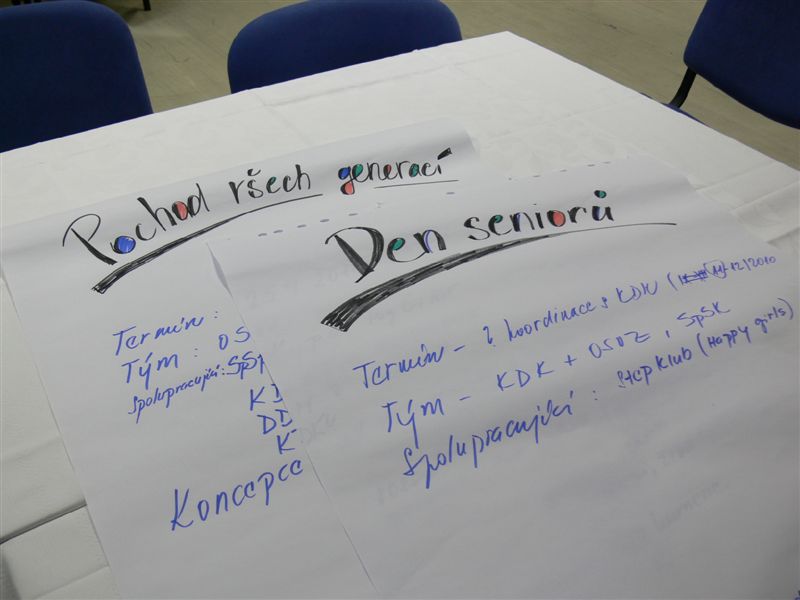 Pochod všech generací
Termín:
Tým: OS
Spolupracující: SpS
KD
DD
K
Koncepce
Den seniorů
Termín - ? koordinace s KDK (11-12/2010
Tým - KDK + OSOZ, SpSK
Spolupracující: Step Klub (Happy girls)